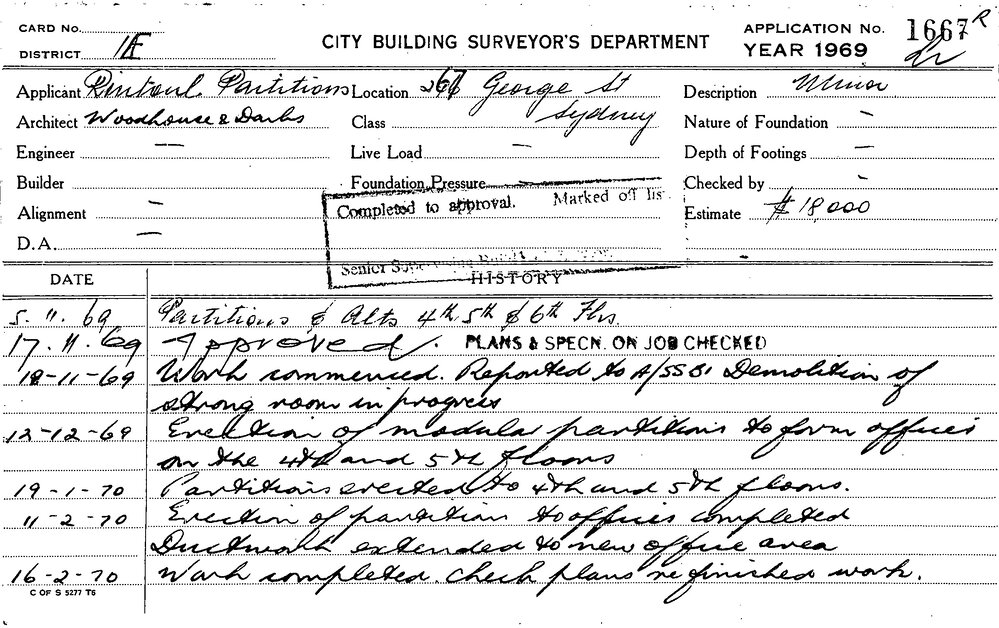 CARD No.
CITY BUILDING SURVEYOR'S DEPARTMENT
APPLICATION No. 1667 R
DISTRICT
YEAR 1969
Applicant Rintoul Partitions Location 267 George St
Sydney
Description Minor
Architect Woodhouse & Danks Class
Nature of Foundation -
Engineer — Live Load — Depth of Footings —
Builder Foundation Pressure Checked by -
Completed to approval. Marked off lis
Alignment — Estimate $18,000
D.A. —
Senior
DATE HISTORY
5. 11. 69 Partitions & Alts 4th 5th & 6th Flrs.
17. 11. 69 Approved. PLANS & SPECN. ON JOB CHECKED
18-11-69 Work commenced. Reported to A/SSBI Demolition of
strong room in progress
12-12-69 Erection of modular partitions to form offices
on the 4th and 5th floors
19-1-70 Partitions erected to 4th and 5th floors.
11-2-70 Erection of partition to offices completed
Ductwork extended to new office area
16-2-70 Work completed. Check plans re finished work.
C OF S 5277 T6